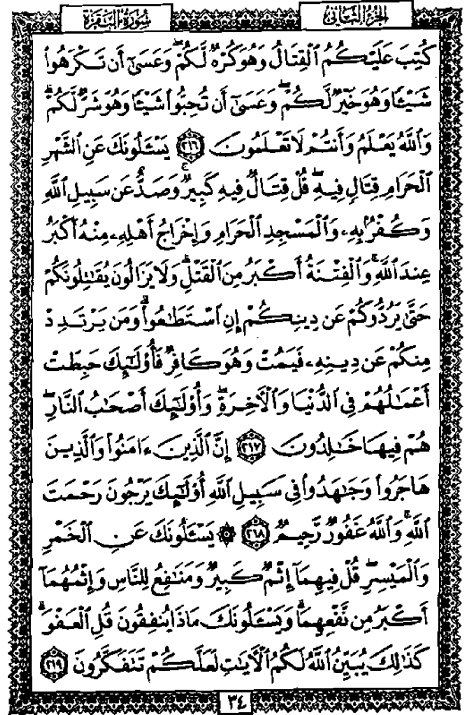 الجزء الثاني
سورة البقرة
كُتِبَ عَلَيْكُمُ الْقِتَالُ وَهُوَ كُرْهٌ لَّكُمْ وَعَسَىٰٓ أَن تَكْرَهُوا۟
شَيْـًٔا وَهُوَ خَيْرٌ لَّكُمْ وَعَسَىٰٓ أَن تُحِبُّوا۟ شَيْـًٔا وَهُوَ شَرٌّ لَّكُمْ
وَاللَّهُ يَعْلَمُ وَأَنتُمْ لَا تَعْلَمُونَ ٢١٦ يَسْـَٔلُونَكَ عَنِ الشَّهْرِ
الْحَرَامِ قِتَالٍ فِيهِ قُلْ قِتَالٌ فِيهِ كَبِيرٌ وَصَدٌّ عَن سَبِيلِ اللَّهِ
وَكُفْرٌۢ بِهِۦ وَالْمَسْجِدِ الْحَرَامِ وَإِخْرَاجُ أَهْلِهِۦ مِنْهُ أَكْبَرُ
عِندَ اللَّهِ وَالْفِتْنَةُ أَكْبَرُ مِنَ الْقَتْلِ وَلَا يَزَالُونَ يُقَٰتِلُونَكُمْ
حَتَّىٰ يَرُدُّوكُمْ عَن دِينِكُمْ إِنِ اسْتَطَٰعُوا۟ وَمَن يَرْتَدِدْ
مِنكُمْ عَن دِينِهِۦ فَيَمُتْ وَهُوَ كَافِرٌ فَأُو۟لَٰٓئِكَ حَبِطَتْ
أَعْمَٰلُهُمْ فِى الدُّنْيَا وَالْـَٔاخِرَةِ وَأُو۟لَٰٓئِكَ أَصْحَٰبُ النَّارِ
هُمْ فِيهَا خَٰلِدُونَ ٢١٧ إِنَّ الَّذِينَ ءَامَنُوا۟ وَالَّذِينَ
هَاجَرُوا۟ وَجَٰهَدُوا۟ فِى سَبِيلِ اللَّهِ أُو۟لَٰٓئِكَ يَرْجُونَ رَحْمَتَ
اللَّهِ وَاللَّهُ غَفُورٌ رَّحِيمٌ ٢١٨ ۞ يَسْـَٔلُونَكَ عَنِ الْخَمْرِ
وَالْمَيْسِرِ قُلْ فِيهِمَآ إِثْمٌ كَبِيرٌ وَمَنَٰفِعُ لِلنَّاسِ وَإِثْمُهُمَآ
أَكْبَرُ مِن نَّفْعِهِمَا وَيَسْـَٔلُونَكَ مَاذَا يُنفِقُونَ قُلِ الْعَفْوَ
كَذَٰلِكَ يُبَيِّنُ اللَّهُ لَكُمُ الْـَٔايَٰتِ لَعَلَّكُمْ تَتَفَكَّرُونَ ٢١٩
٣٤